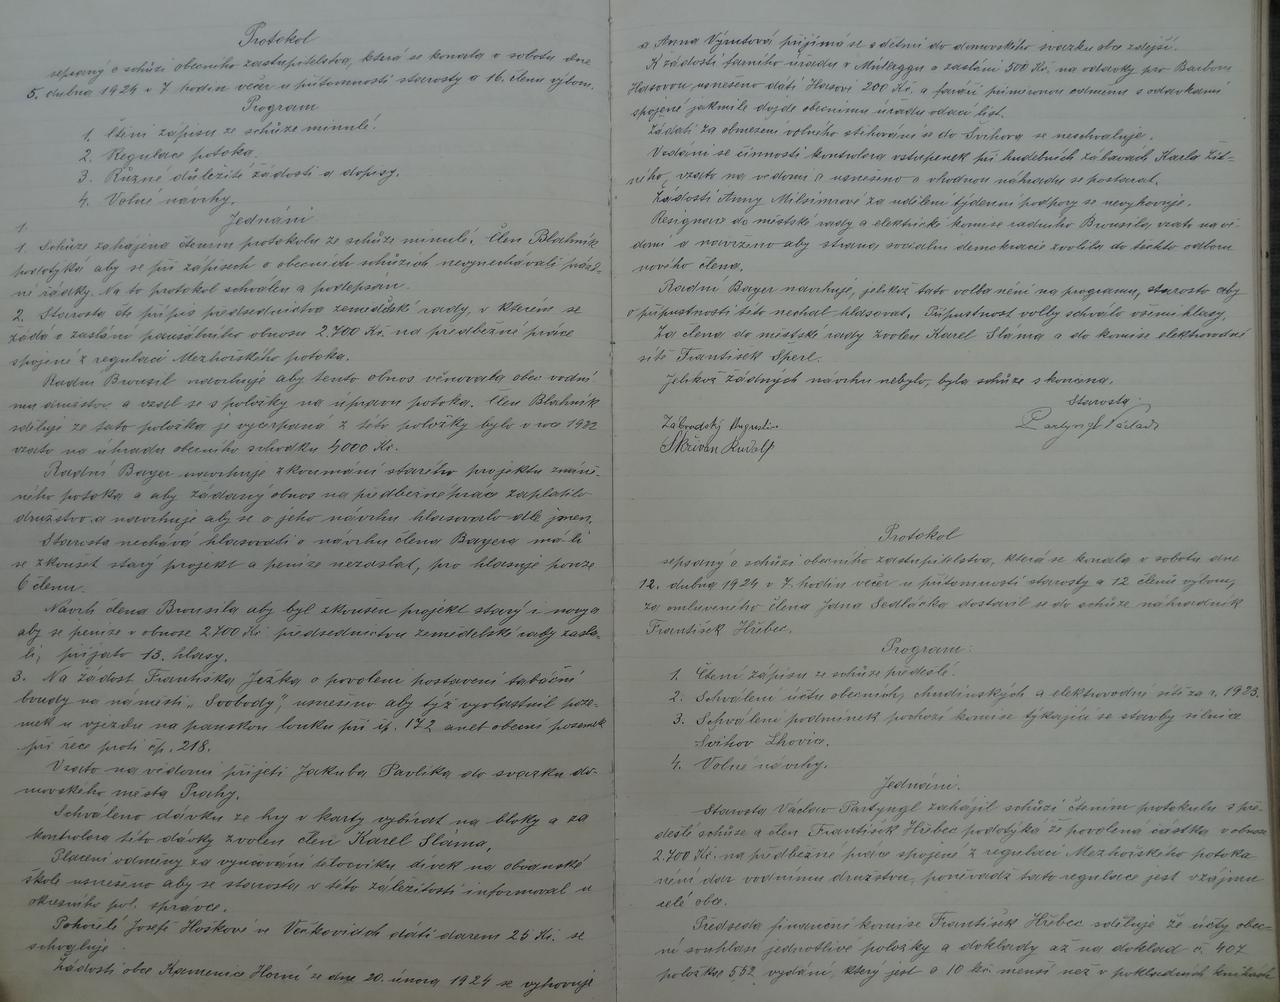 Protokol
sepsaný o schůzi obecního zastupitelstva, která se konala v sobotu dne
5. dubna 1924 v 7 hodin večer u přítomnosti starosty a 16. členů výboru.
Program
1. Čtení zápisu ze schůze minulé.
2. Regulace potoka.
3. Různé důležité žádosti a dopisy.
4. Volné návrhy.
Jednání
1. Schůze zahájena čtením protokolu ze schůzi minulé. Člen Blahník
podotýká aby se při zápisech o obecních schůzích nevynechávali prázd-
né řádky. Na to protokol schválen a podepsán.
2. Starosta čte přípis předsednictva zemědělské rady, v kterém se
žádá o zaslání paušálního obnosu 2.700 Kč. na předběžné práce
spojené z regulací Mezhořského potoka.
Radní Brousil navrhuje aby tento obnos věnovala obec vodní
mu družstvu a vzal se s položky na úpravu potoka. Člen Blahník
sděluje že tato položka je vyčerpaná z této položky bylo v roce 1922
vzato na úhradu obecního schodku 4000 Kč.
Radní Bayer navrhuje zkoumání starého projektu zmíně-
ného potoka a aby žádaný obnos na předběžné práce zaplatilo
družstvo a navrhuje aby se o jeho návrhu hlasovalo dle jmen.
Starosta nechává hlasovati o návrhu člena Bayera má-li
se zkoušet starý projekt a peníze nezaslat, pro hlasuje pouze
6 členů.
Návrh člena Brousila aby byl zkoušen projekt starý i nový a
aby se peníze v obnose 2700 Kč. předsednictvu zemědělské rady zasla-
li, přijato 13. hlasy.
3. Na žádost Františka Ježka o povolení postavení tabáční
boudy na náměstí „Svobody", usnešeno aby týž vyvlastnil poze-
mek u vjezdu na panskou louku při čp. 172 anet obecní pozemek
při řece proti čp. 218.
Vzato na vědomí přijetí Jakuba Pavlíka do svazku do-
movského města Prahy.
Schváleno dávku ze hry v karty vybírat na bloky a za
kontrolora této dávky zvolen člen Karel Sláma.
Placení odměny za vyučování tělocviku dívek na obecanské
škole usnešeno aby se starosta v této záležitosti informoval u
okresního pol. správce.
Pohořelé Josefě Hoškové ve Vočkovicích dáti darem 25 Kč. se
schvaluje.
Žádosti obce Kamenice Horní ze dne 20. února 1924 se vyhovuje
a Anna Výrutová přijímá se s dětmi do domovského svazku obce zdejší.
K žádosti farního úřadu v o zaslání 500 Kč. na odavky pro Barboru
Hasovou usnešeno dáti Hasovi 200 Kč. a faráři přiměřenou odměnu s odavkami
spojené jakmile dojde obecnímu úřadu oddací list.
Žádati za obmezení volného stěhování se do Švihova se neschvaluje.
Vzdání se činnosti kontrolora vstupenek při hudebních zábavách Karla Žit-
ného, vzato na vědomí a usnešeno o vhodnou náhradu se postarat.
Žádosti Anny Milsimrové za udělení týdenní podpory se nevyhovuje.
Resignace do městské rady a elektrické komise radního Brousila vzata na vě-
domí a navrženo aby strana sociální demokracie zvolila do těchto odboru
nového člena.
Radní Bayer navrhuje, jelikož tato volba není na programu, starosto aby
o přípustnosti této nechal hlasovat. Přípustnost volby schválo všemi hlasy.
Za člena do městské rady zvolen Karel Sláma a do komise elektrovodné
sítě František Šperl.
Jelikož žádných návrhu nebylo, byla schůze skončena.
Starosta:
Zábrodský Augustin
Partyngl Václav
Skřivan Rudolf
Protokol
sepsaný o schůzi obecního zastupitelstva, která se konala v sobotu dne
12. dubna 1924 v 7. hodin večer u přítomnosti starosty a 12 členů výboru,
za omluveného člena Jana Sedláčka dostavil se do schůze náhradník
František Hřebec.
Program:
1. Čtení zápisu ze schůze předešlé.
2. Schválení účtu obecních, chudinských a elektrovodné sítě za r. 1923.
3. Schválení podmínek pochozí komise týkající se stavby silnice
Švihov Lhovice.
4. Volné návrhy.
Jednání.
Starosta Václav Partyngl zahájil schůzi čtením protokolu s pře-
dešlé schůze a člen František Hřebec podotýká že povolená částka v obnose
2.700 Kč. na předběžné práce spojené z regulací Mezhořského potoka
není dar vodnímu družstvu, poněvadž tato regulace jest v zájmu
celé obce.
Předseda finanční komise František Hřebec sděluje že účty obec-
ní souhlasí jednotlivé položky a doklady až na doklad č. 407
položka 552 vydání, který jest o 10 Kč. menší než v pokladních knihách